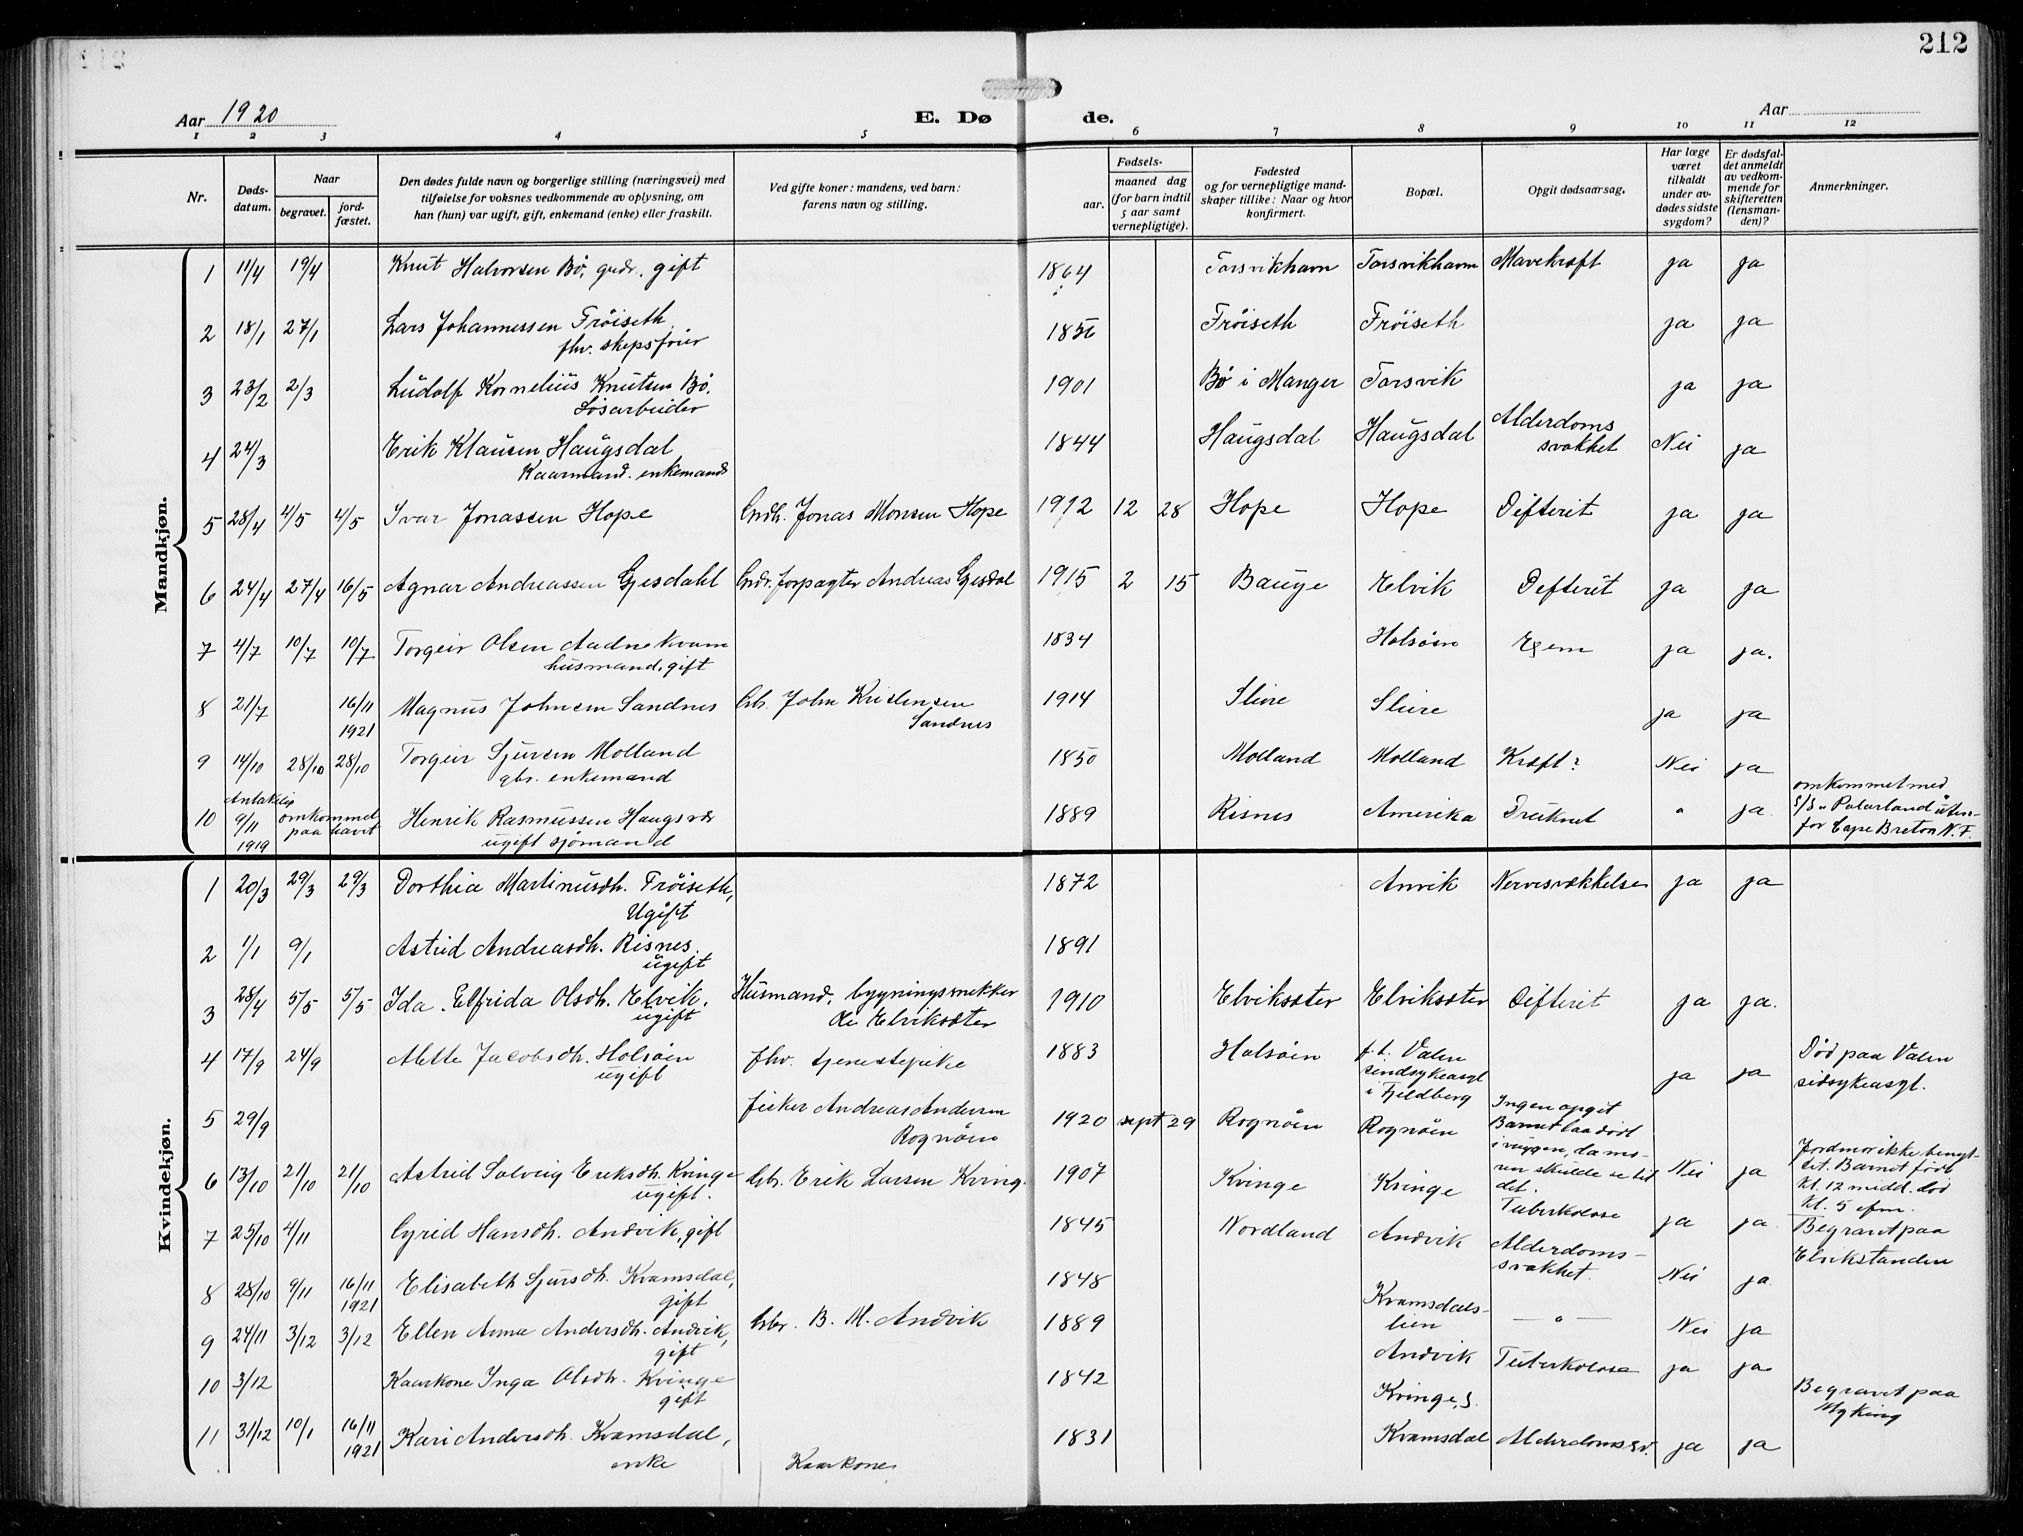 212
Aar 1920
E. Dø
de.
Aar
1 2 3 4 5 6 7 8 9 10 11 12
Nr.
Døds-
datum.
Naar
begravet.
jord-
fæstet.
Den dødes fulde navn og borgerlige stilling (næringsvei) med
tilføielse for voksnes vedkommende av oplysning, om
han (hun) var ugift, gift, enkemand (enke) eller fraskilt.
Ved gifte koner: mandens, ved barn:
farens navn og stilling.
Fødsels-
aar.
maaned dag
(for barn indtil
5 aar samt
vernepligtige).
Fødested
og for vernepligtige mand-
skaper tillike: Naar og hvor
konfirmert.
Bopæl.
Opgit dødsaarsag.
Har læge
været
tilkaldt
under av-
dødes sidste
sygdom?
Er dødsfal-
det anmeldt
av vedkom-
mende for
skifteretten
(lensman-
den)?
Anmerkninger.
Mandkjøn.
1 11/4 19/4 Knut Halvorsen Bø, gndr. gift 1864 Torsvikhavn Torsvikhavn Mavekræft ja ja
2 18/1 27/1 Lars Johannessen Frøiseth 1856 Frøiseth Frøiseth ja ja
fhv. skepsfører
3 23/2 2/3 Ludolf Kornelius Knutsen Bø. 1901 Bø i Manger Torsvik ja ja
Løsarbeider
4 24/3 Erik Klausen Haugsdal 1844 Haugsdal Haugsdal Alderdoms
svakhet Nei ja
Kaarmand. enkemand
5 28/4 4/5 4/5 Ivar Jonassen Hope Grdb. Jonas Monsen Hope 1912 12 28 Hope Hope Difterit ja ja
6 24/4 27/4 16/5 Agnar Andreassen Gjesdahl Grdr. forpagter Andreas Gjesdal 1915 2 15 Bauge Elvik Defterit ja ja
7 4/7 10/7 10/7 Torgeir Olsen Aadnekvam 1834 Holsøen ja ja.
husmand, gift
8 21/7 16/11 1921 Magnus Johnsen Sandnes Gbr. John Kristensen
Sandnes 1914 Slire Slire ja ja
9 14/10 28/10 28/10 Torgeir Sjursen Molland 1850 Molland Molland Kræft? Nei ja
gbr. enkemand
10 Antakelig 9/11 1919 omkommet
paa havet Henrik Rasmussen Haugsvær 1889 Risnes Amerika Druknet " ja
ugift sjømand
omkommet med
S/S "Polarland" uten-
for Cape Breton N.F.
Kvindekjøn.
1 20/3 29/3 29/3 Dorthia Martinusdh. Frøiseth, 1872 Anvik Nervesvækkelse ja ja
Ugift
2 1/1 9/1 Astrid Andreasdh. Risnes. 1891
ugift
3 28/4 5/5 5/5 Ida Elfrida Olsdh. Elvik. Husmand, bygningssnekker
Elviksæter 1910 Elviksæter Elviksæter Difterit ja ja.
ugift
4 17/9 24/9 Mette Jacobsdh. Holsøen fhv. tjenestepike 1883 Holsøen p.t. Valen
sindsykeasyl
i Fjeldberg ja ja
ugift
Død paa Valen
sidsykeasyl.
5 29/9 fisker Andreas Andersen
Rognøen 1920 sept 29 Rognøen Rognøen Ingen opgit
Barnet laa dødt
i vuggen, da mo-
ren skulde se til
det. Nei ja
Jordmor ikke benyt-
tet. Barnet født
kl. 12 midd. død
kl. 5 efm.
6 13/10 21/10 21/10 Astrid Solveig Eriksdh. Kvinge Gbr. Erik Larsen Kvinge 1907 Kvinge Kvinge Tuberkolose ja ja
ugift.
7 25/10 4/11 Gyrid Hansdh. Andvik, gift 1845 Nordland Andvik Alderdoms-
svakhet. Nei ja
Begravet paa
Elvikstanden
8 28/10 9/11 16/11 1921 Elisabeth Sjursdh. Kvamsdal, 1848 Kvamsdals-
lien — " — Nei ja
gift
9 24/11 3/12 3/12 Ellen Anna Andersdh. Andvik, Gbr. B. M. Andvik 1889 Andvik Tuberkolose ja ja
gift
10 3/12 Kaarkone Inga Olsdh. Kvinge 1842 Kvinge, S.
gift
Begravet paa
Myking
11 31/12 10/1 16/11 1921 Kari Andersdh. Kvamsdal, 1831 Kvamsdal Alderdomssv. ja ja
enke Kaarkone